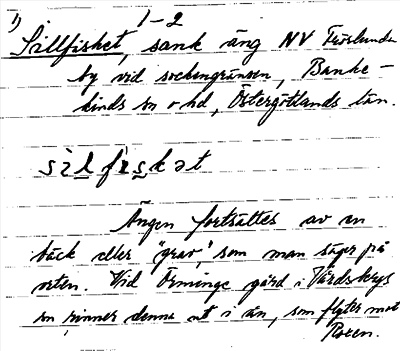 1) 1-2
Sillfisket, sank äng NV Fröslunda
by vid sockengränsen, Banke-
kinds sn o hd, Östergötlands län.
sìlfiskət
Ängen fortsättes av en
bäck eller "grav", som man säger på
orten. Vid Örminge gård i Vårdsbergs
sn rinner denna ut i ån, som flyter mot
Roxen.